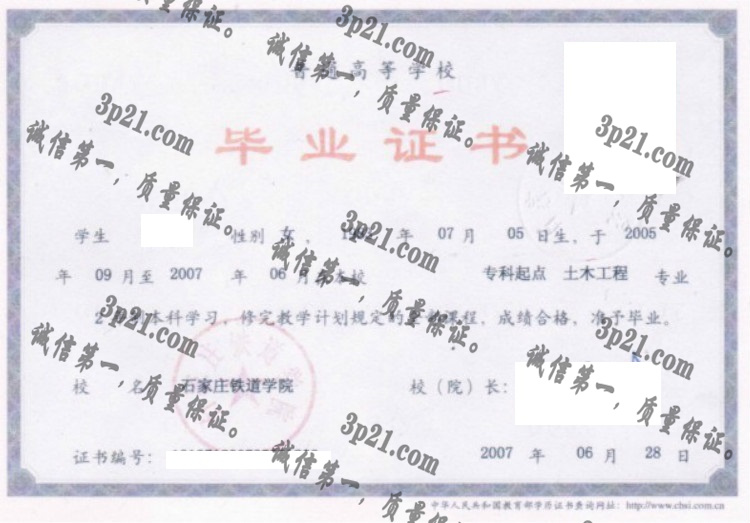 普通高等学校
毕业证书
学生 性别 女， 年 07 月 05 日生，于 2005
年 09 月至 2007 年 06 月 本校 专科起点 土木工程 专业
2 本科学习，修完教学计划规定的 课程，成绩合格，准予毕业。
校 名 石家庄铁道学院 校（院）长：
证书编号：
2007 年 06 月 28 日
中华人民共和国教育部学历证书查询网址：http://www.chsi.com.cn
3p21.com
诚信第一，质量保证。
3p21.com
诚信第一，质量保证。
3p21.com
诚信第一，质量保证。
3p21.com
诚信第一，质量保证。
3p21.com
诚信第一，质量保证。
3p21.com
诚信第一，质量保证。
3p21.com
诚信第一，质量保证。
3p21.com
诚信第一，质量保